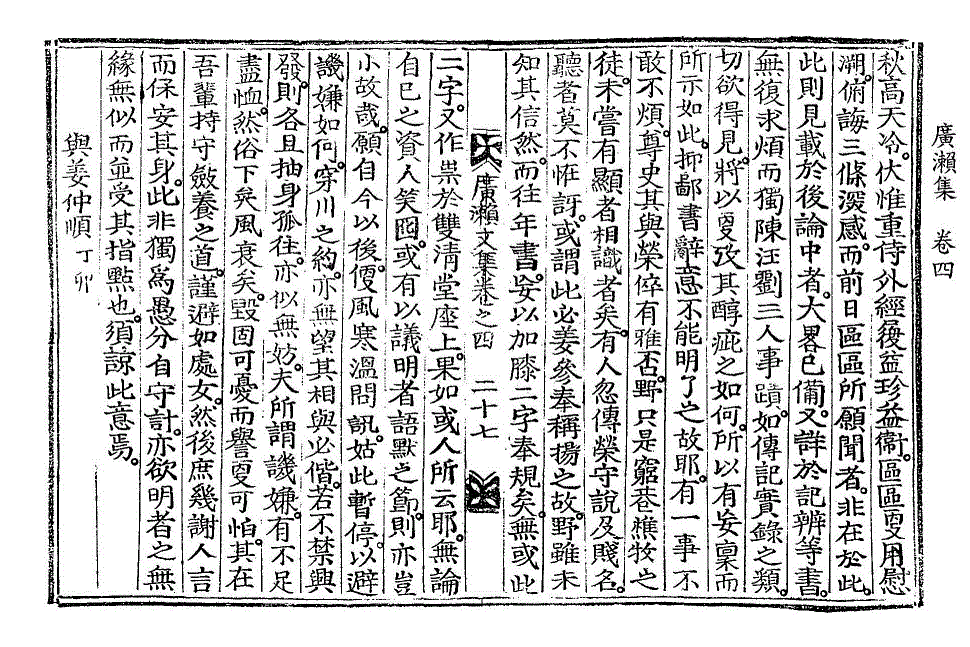 廣瀨集 卷四
秋高天冷。伏惟重侍外經履益珍益衞。區區叟用慰
溯。俯誨三條深感。而前日區區所願聞者。非在於此。
此則見載於後論中者。大畧已備。又詳於記辨等書。
無復求煩。而獨陳汪劉三人事蹟。如傳記實錄之類。
切欲得見。將以叟攷其醇疵之如何。所以有妄稟。而
所示如此。抑鄙書辭意不能明了之故耶。有一事不
敢不煩。尊史其與榮倅有雅否。野只是窮巷樵牧之
徒。未嘗有顯者相識者矣。有人忽傳榮守說及賤名。
聽者莫不恠訝。或謂此必姜參奉稱揚之故。野雖未
知其信然。而往年書。妄以加膝二字奉規矣。無或此
廣瀨文集卷之四 二十七
二字。又作祟於雙淸堂座上。果如或人所云耶。無論
自己之資人笑囮。或有以議明者語默之節。則亦豈
小故哉。願自今以後。便風寒溫問訊。姑此暫停。以避
譏嫌如何。穿川之約。亦無望其相與必偕。若不禁興
發。則各且抽身孤往。亦似無妨。夫所謂譏嫌。有不足
盡恤。然俗下矣風衰矣。毀固可憂而譽叟可怕。其在
吾輩持守斂養之道。謹避如處女。然後庶幾謝人言
而保安其身。此非獨爲愚分自守計。亦欲明者之無
緣無似而並受其指點也。須諒此意焉。
與姜仲順 丁卯